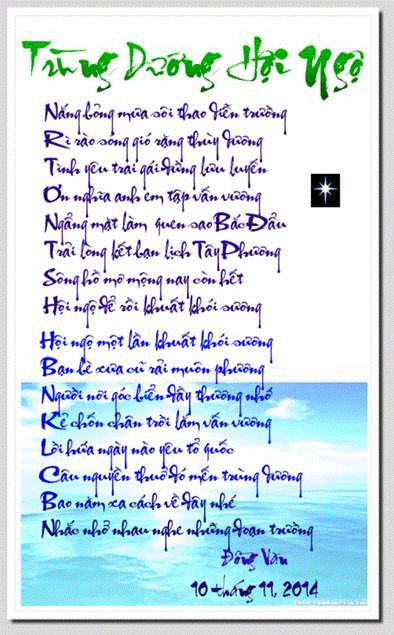 Trùng Dương Hội Ngộ
Nắng bỏng mưa sôi thao diễn trường
Rì rào sóng gió rặng thùy dương
Tình yêu trai gái đừng lưu luyến
Ơn nghĩa anh em tập vấn vương
Ngẩng mặt làm quen sao Bắc Đẩu
Trải lòng kết bạn lịch Tây Phương
Sông hồ mơ mộng nay còn hết
Hội ngộ để rồi khuất khói sương
Hội ngộ một lần khuất khói sương
Bạn bè xưa cũ rải muôn phương
Người nơi góc biển đầy thương nhớ
Kẻ chốn chân trời lắm vấn vương
Lời hứa ngày nào yêu tổ quốc
Câu nguyền thuở đó mến trùng dương
Bao năm xa cách về đây nhé
Nhắc nhở nhau nghe những đoạn trường
Đông Vân
10 tháng 11, 2014